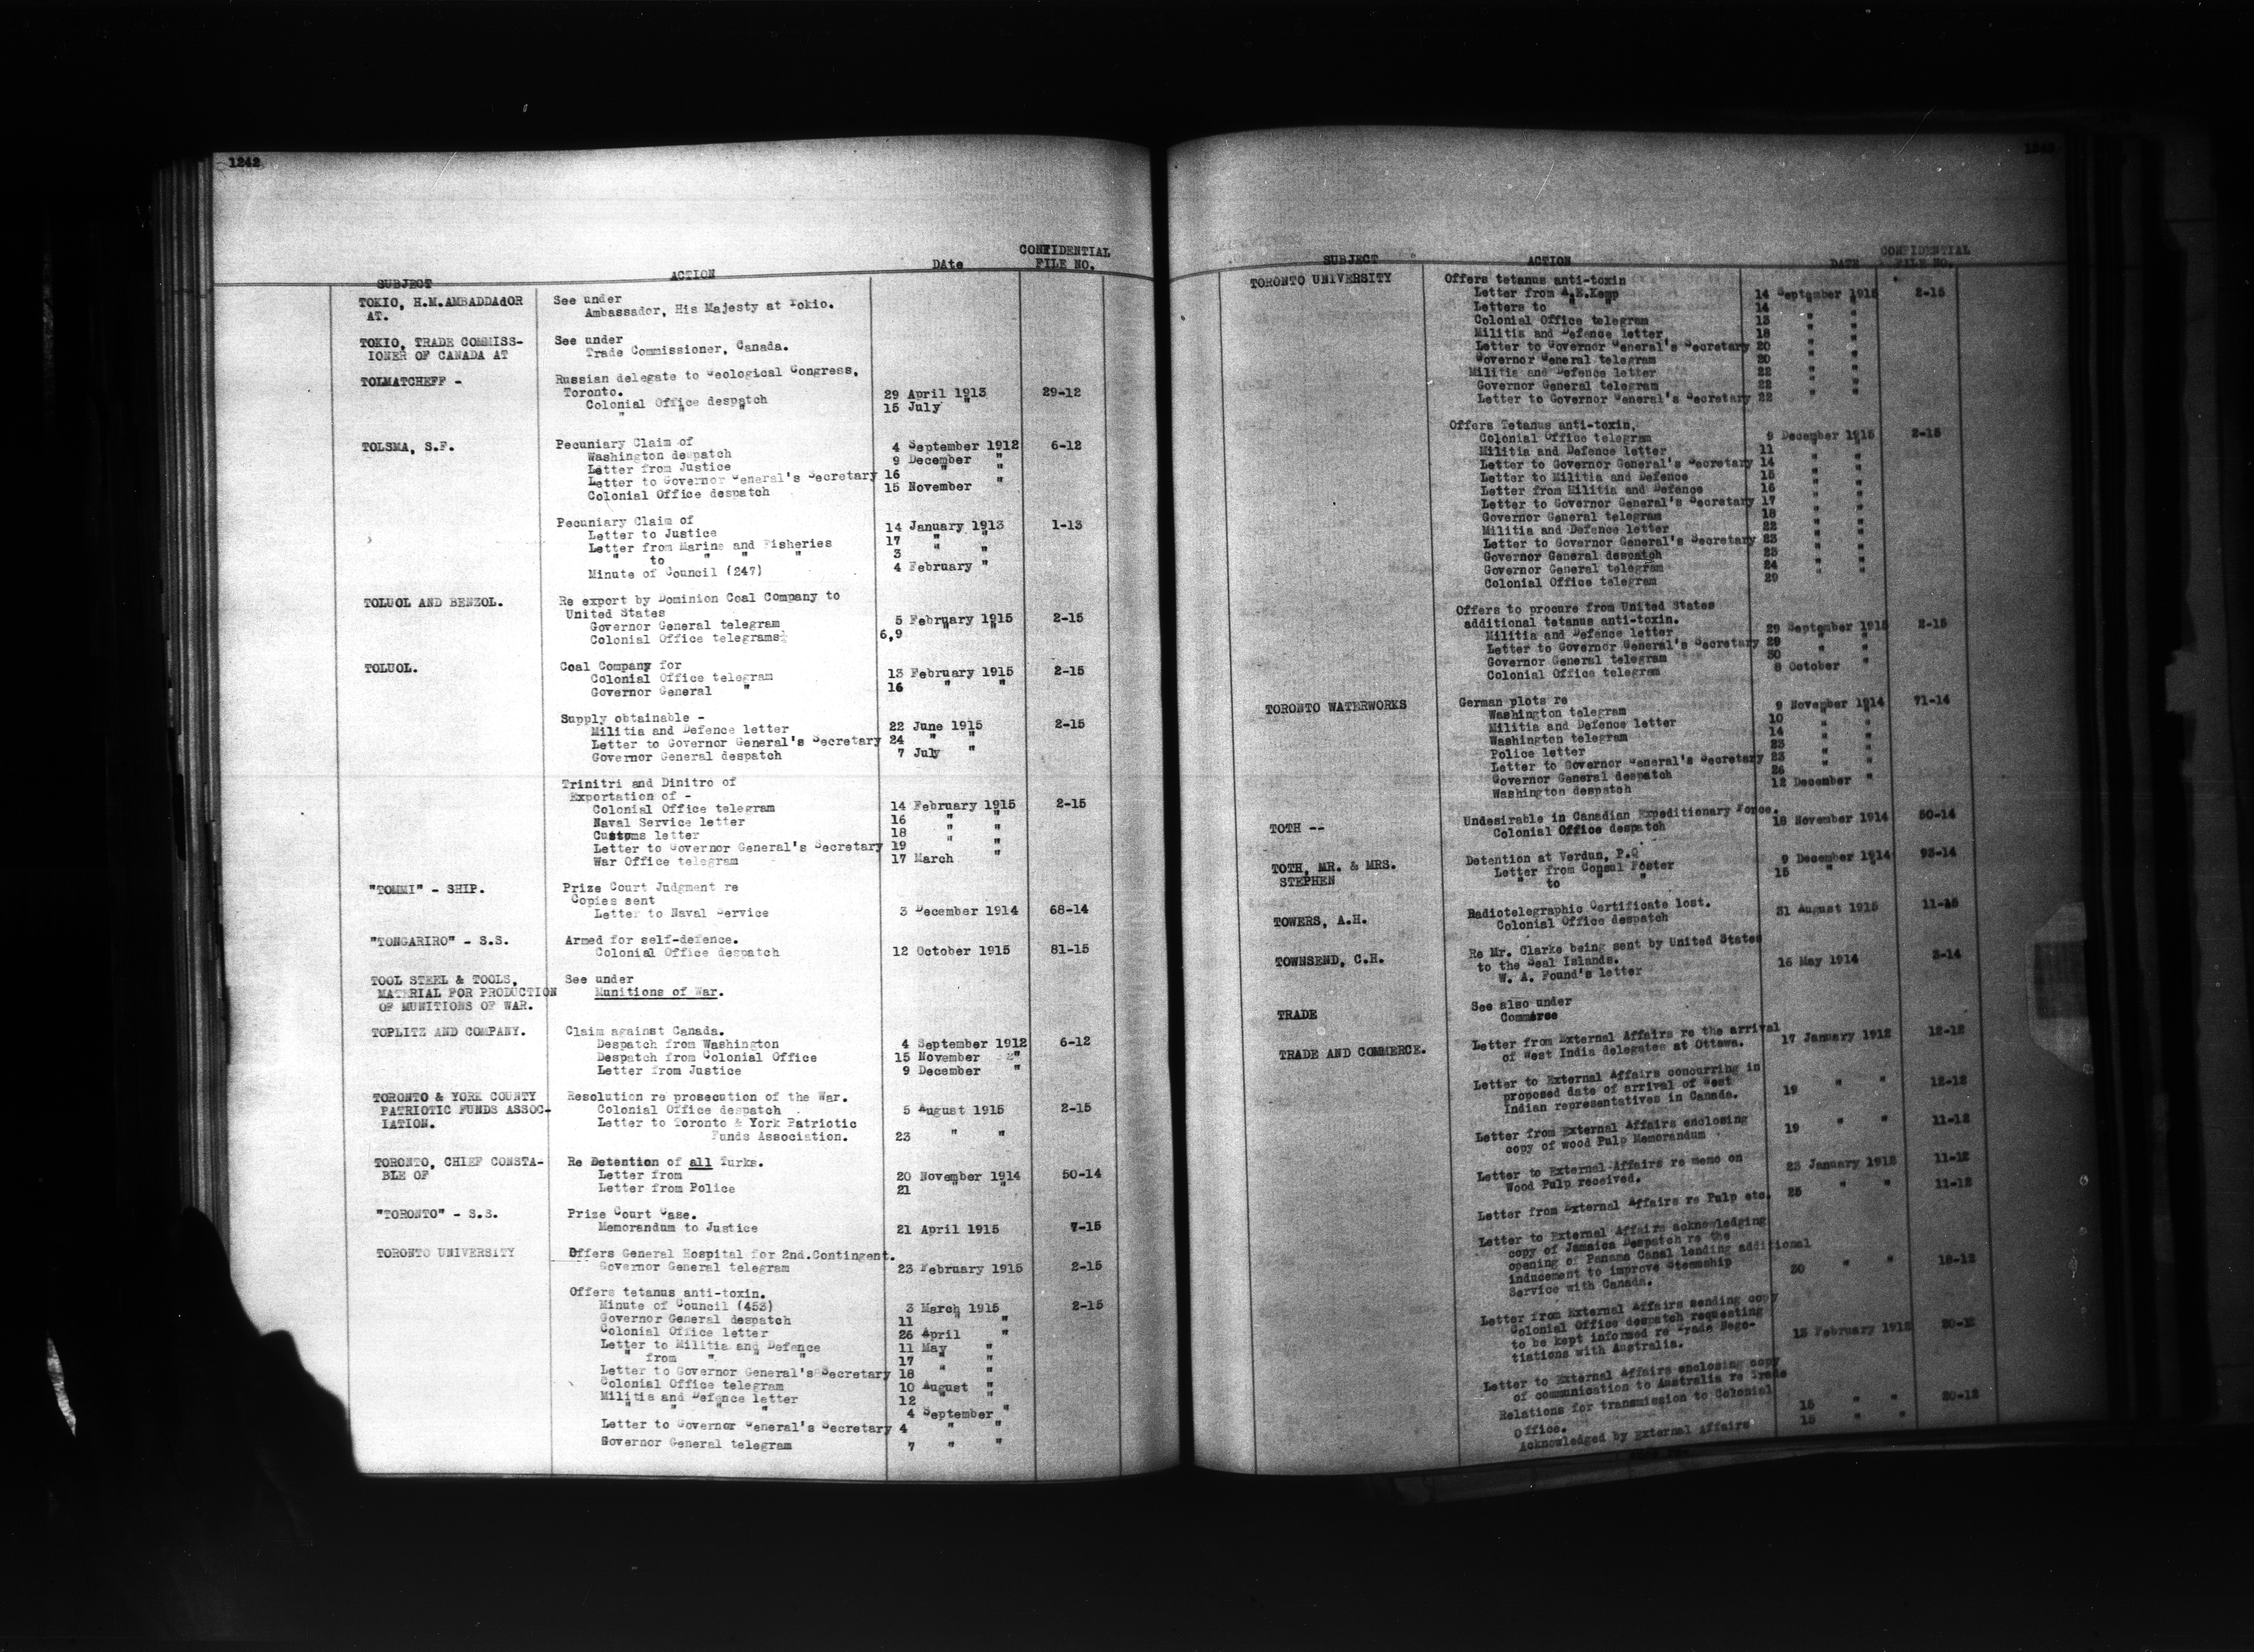 1242
SUBJECT ACTION DAte CONFIDENTIAL FILE NO.
TOKIO, H.M.AMBADDAdOR See under
AT. Ambassador, His Majesty at Tokio.
TOKIO, TRADE COMMISS- See under
IONER OF CANADA AT Trade Commissioner, Canada.
TOLMATCHEFF - Russian delegate to Geological Congress,
Toronto.
Colonial Office despatch 29 April 1913 29-12
" " " 15 July "
TOLSMA, S.F. Pecuniary Claim of
Washington despatch 4 September 1912 6-12
Letter from Justice 9 December "
Letter to Governor General's Secretary 16 " "
Colonial Office despatch 15 November "
Pecuniary Claim of
Letter to Justice 14 January 1913 1-13
Letter from Marine and Fisheries 17 " "
" to " " " 3 " "
Minute of Council (247) 4 February "
TOLUOL AND BENZOL. Re export by Dominion Coal Company to
United States
Governor General telegram 5 February 1915 2-15
Colonial Office telegrams 6,9 " "
TOLUOL. Coal Company for
Colonial Office telegram 13 February 1915 2-15
Governor General " 16 " "
Supply obtainable -
Militia and Defence letter 22 June 1915 2-15
Letter to Governor General's Secretary 24 " "
Governor General despatch 7 July "
Trinitri and Dinitro of
Exportation of -
Colonial Office telegram 14 February 1915 2-15
Naval Service letter 16 " "
Customs letter 18 " "
Letter to Governor General's Secretary 19 " "
War Office telegram 17 March "
"TOMMI" - SHIP. Prize Court Judgment re
Copies sent
Letter to Naval Service 3 December 1914 68-14
"TONGARIRO" - S.S. Armed for self-defence.
Colonial Office despatch 12 October 1915 81-15
TOOL STEEL & TOOLS, See under
MATERIAL FOR PRODUCTION Munitions of War.
OF MUNITIONS OF WAR.
TOPLITZ AND COMPANY. Claim against Canada.
Despatch from Washington 4 September 1912 6-12
Despatch from Colonial Office 15 November "
Letter from Justice 9 December "
TORONTO & YORK COUNTY Resolution re prosecution of the War.
PATRIOTIC FUNDS ASSOC- Colonial Office despatch 5 August 1915 2-15
IATION. Letter to Toronto & York Patriotic
Funds Association. 23 " "
TORONTO, CHIEF CONSTA- Re Detention of all Turks.
BLE OF Letter from 20 November 1914 50-14
Letter from Police 21 " "
"TORONTO" - S.S. Prize Court Case.
Memorandum to Justice 21 April 1915 7-15
TORONTO UNIVERSITY Offers General Hospital for 2nd.Contingent.
Governor General telegram 23 February 1915 2-15
Offers tetanus anti-toxin.
Minute of Council (453) 3 March 1915 2-15
Governor General despatch 11 " "
Colonial Office letter 26 April "
Letter to Militia and Defence 11 May "
" from " " " 17 " "
Letter to Governor General's Secretary 18 " "
Colonial Office telegram 10 August "
Militia and Defence letter 12 " "
" " " " 4 September "
Letter to Governor General's Secretary 4 " "
Governor General telegram 7 " "
SUBJECT ACTION DATE CONFIDENTIAL FILE NO.
TORONTO UNIVERSITY Offers tetanus anti-toxin
Letter from A.E.Kemp 14 September 1915 2-15
Letters to " " 14 " "
Colonial Office telegram 13 " "
Militia and Defence letter 18 " "
Letter to Governor General's Secretary 20 " "
Governor General telegram 20 " "
Militia and Defence letter 22 " "
Governor General telegram 22 " "
Letter to Governor General's Secretary 22 " "
Offers Tetanus anti-toxin,
Colonial Office telegram 9 December 1915 2-15
Militia and Defence letter 11 " "
Letter to Governor General's Secretary 14 " "
Letter to Militia and Defence 15 " "
Letter from Militia and Defence 16 " "
Letter to Governor General's Secretary 17 " "
Governor General telegram 18 " "
Militia and Defence letter 22 " "
Letter to Governor General's Secretary 23 " "
Governor General despatch 23 " "
Governor General telegram 24 " "
Colonial Office telegram 29 " "
Offers to procure from United States
additional tetanus anti-toxin.
Militia and Defence letter 29 September 1915 2-15
Letter to Governor General's Secretary 29 " "
Governor General telegram 30 " "
Colonial Office telegram 8 October "
TORONTO WATERWORKS German plots re
Washington telegram 9 November 1914 71-14
Militia and Defence letter 10 " "
Washington telegram 14 " "
Police letter 23 " "
Letter to Governor General's Secretary 23 " "
Governor General despatch 26 " "
Washington despatch 12 December "
TOTH -- Undesirable in Canadian Expeditionary Force.
Colonial Office despatch 18 November 1914 50-14
TOTH, MR. & MRS. Detention at Verdun, P.Q
STEPHEN Letter from Consul Foster 9 December 1914 93-14
" to " " 15 " "
TOWERS, A.H. Radiotelegraphic Certificate lost.
Colonial Office despatch 31 August 1915 11-15
TOWNSEND, C.H. Re Mr. Clarke being sent by United States
to the Seal Islands.
W. A. Found's letter 16 May 1914 3-14
TRADE See also under
Commerce
TRADE AND COMMERCE. Letter from External Affairs re the arrival
of West India delegates at Ottawa. 17 January 1912 12-12
Letter to External Affairs concurring in
proposed date of arrival of West
Indian representatives in Canada. 19 " " 12-12
Letter from External Affairs enclosing
copy of wood Pulp Memorandum 19 " " 11-12
Letter to External Affairs re memo on
Wood Pulp received. 23 January 1912 11-12
Letter from External Affairs re Pulp etc. 25 " " 11-12
Letter to External Affairs acknowledging
copy of Jamaica Despatch re the
opening of Panama Canal lending additional
inducement to improve Steamship
Service with Canada. 30 " " 18-12
Letter from External Affairs sending copy
Colonial Office despatch requesting
to be kept informed re Trade Nego-
tiations with Australia. 13 February 1912 20-12
Letter to External Affairs enclosing copy
of communication to Australia re Trade
Relations for transmission to Colonial
Office. 15 " " 20-12
Acknowledged by External Affairs 15 " "